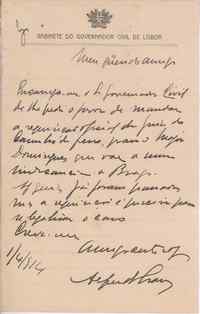 GABINETE DO GOVERNADOR CIVIL DE LISBOA
Meu querido amigo
Encarrega-me o Sr Governador Civil
de lhe pedir o favor de mandar
a requisição official da guia do
Caminho de ferro, para o major
Domingues que vae a uma
sindicancia a Braga.
já foram passadas
mas a requisição é precisa para
legalisar o caso
Creia-me
1/4/914